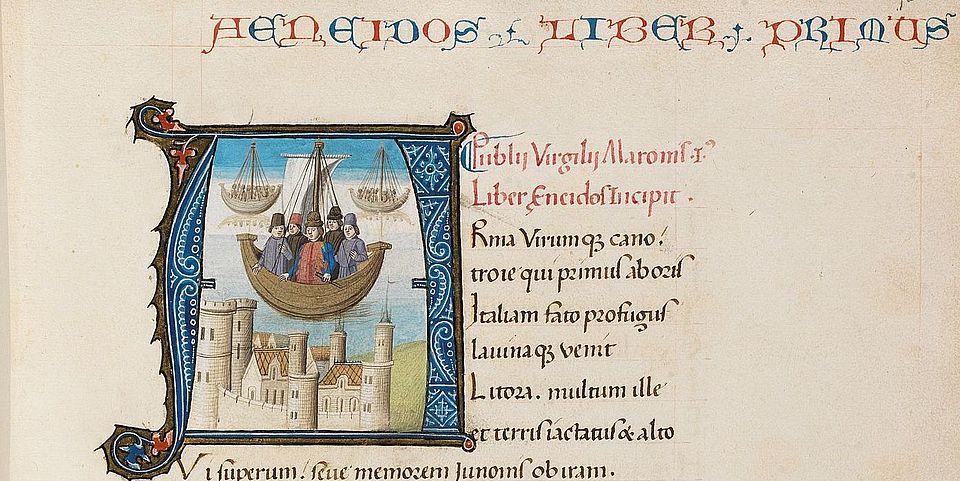 AENEIDOS LIBER PRIMUS
Publii Virgilii Maronis I
Liber Eneidos Incipit .
Rma Virumq; cano.
troie qui primus aboris
Italiam fato profugus
lauinaq; venit
Litora. multum ille
et terris iactatus & alto
Vi superum. seue memorem Junonis ob iram.